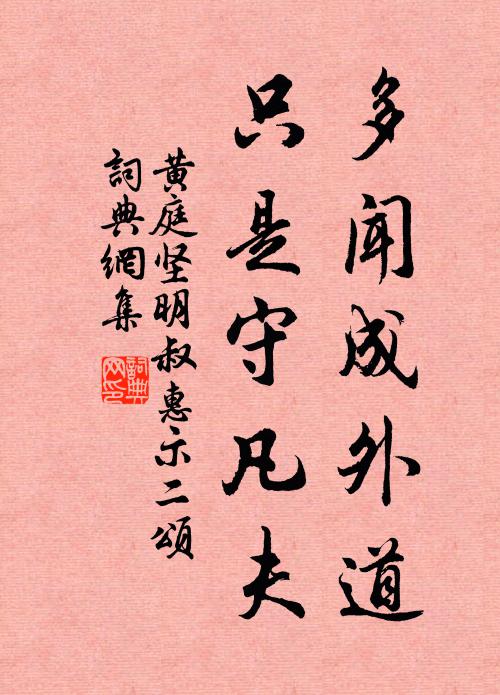 多闻成外道
只是守凡夫
黄庭坚明叔惠示二颂
詞典網集
詞典
网印